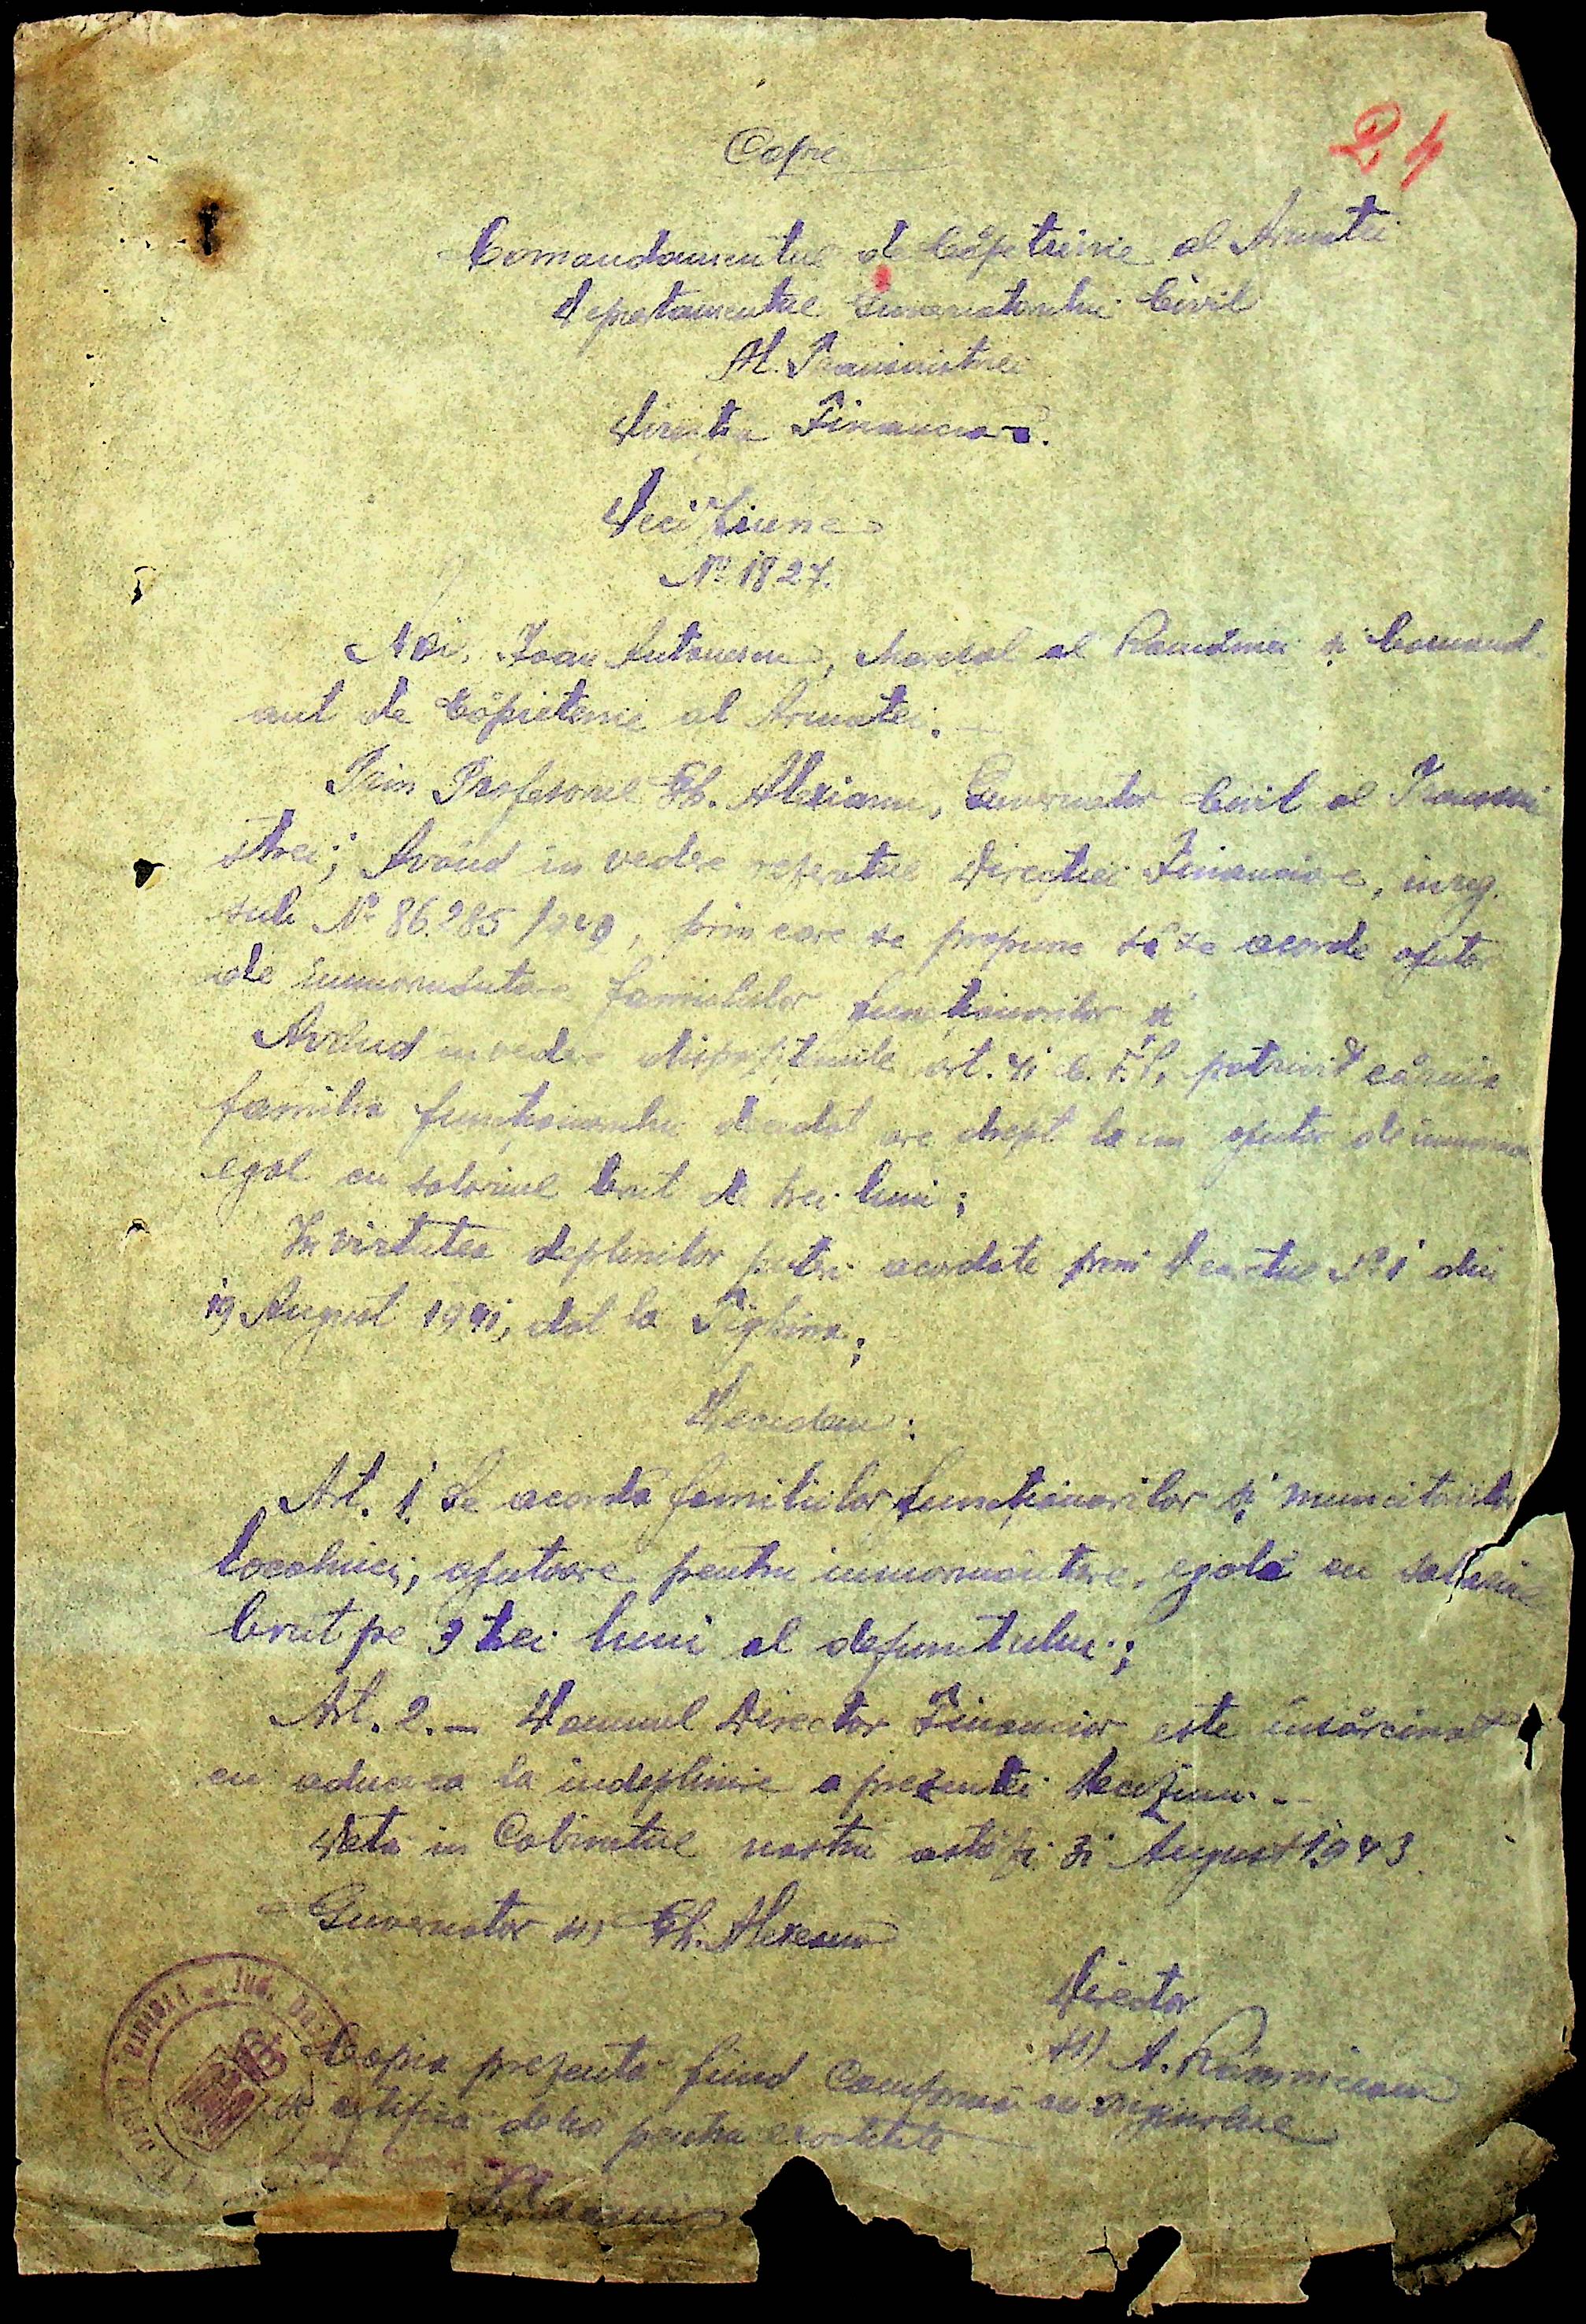 Copie
24
Comandamentul de Căpetenie al Armatei
Departamentul Guvernatorului Civil
Al Transnistriei
Direcția Financiară.
Deciziune
No 1827.
Noi, Ioan Antonescu, Mareșal al României și Comand-
ant de Căpietenie al Armatei.
Prin Profesorul Gh. Alexianu, Guvernator Civil al Transni
striei; Având în vedere referatul Direcției Financiare, inreg.
sub No 86.285/943, prin care se propune să se acorde ajutor
de înmormântare familiilor funcționarilor și
Având in vedere dispozițiunile art. 41 C. F. P. potrivit căruia
familia funcționarului decedat are drept la un ajutor de inmorm
egal cu salariul brut de trei luni;
In virtutea deplinilor puteri acordate prin Decretul No 1 din
19 August 1941, dat la Tighina;
Decidem:
Art. 1 Se acordă familiilor funcționarilor și muncitorilor
localnici, ajutoare pentru inmormântare, egală cu salariul
brut pe 3 trei luni al defunctului;
Art. 2. — Domnul Director Financiar este însărcinat
cu aducerea la indeplinire a prezentei Deciziuni. -
Dată in Cabinetul nostru astăzi 31 August 1943.
Guvernator ss) Gh. Alexianu
Director
ss) A. Râmniceanu
Copia prezentă fiind conformă cu originalul
se certifică de noi pentru exactitate